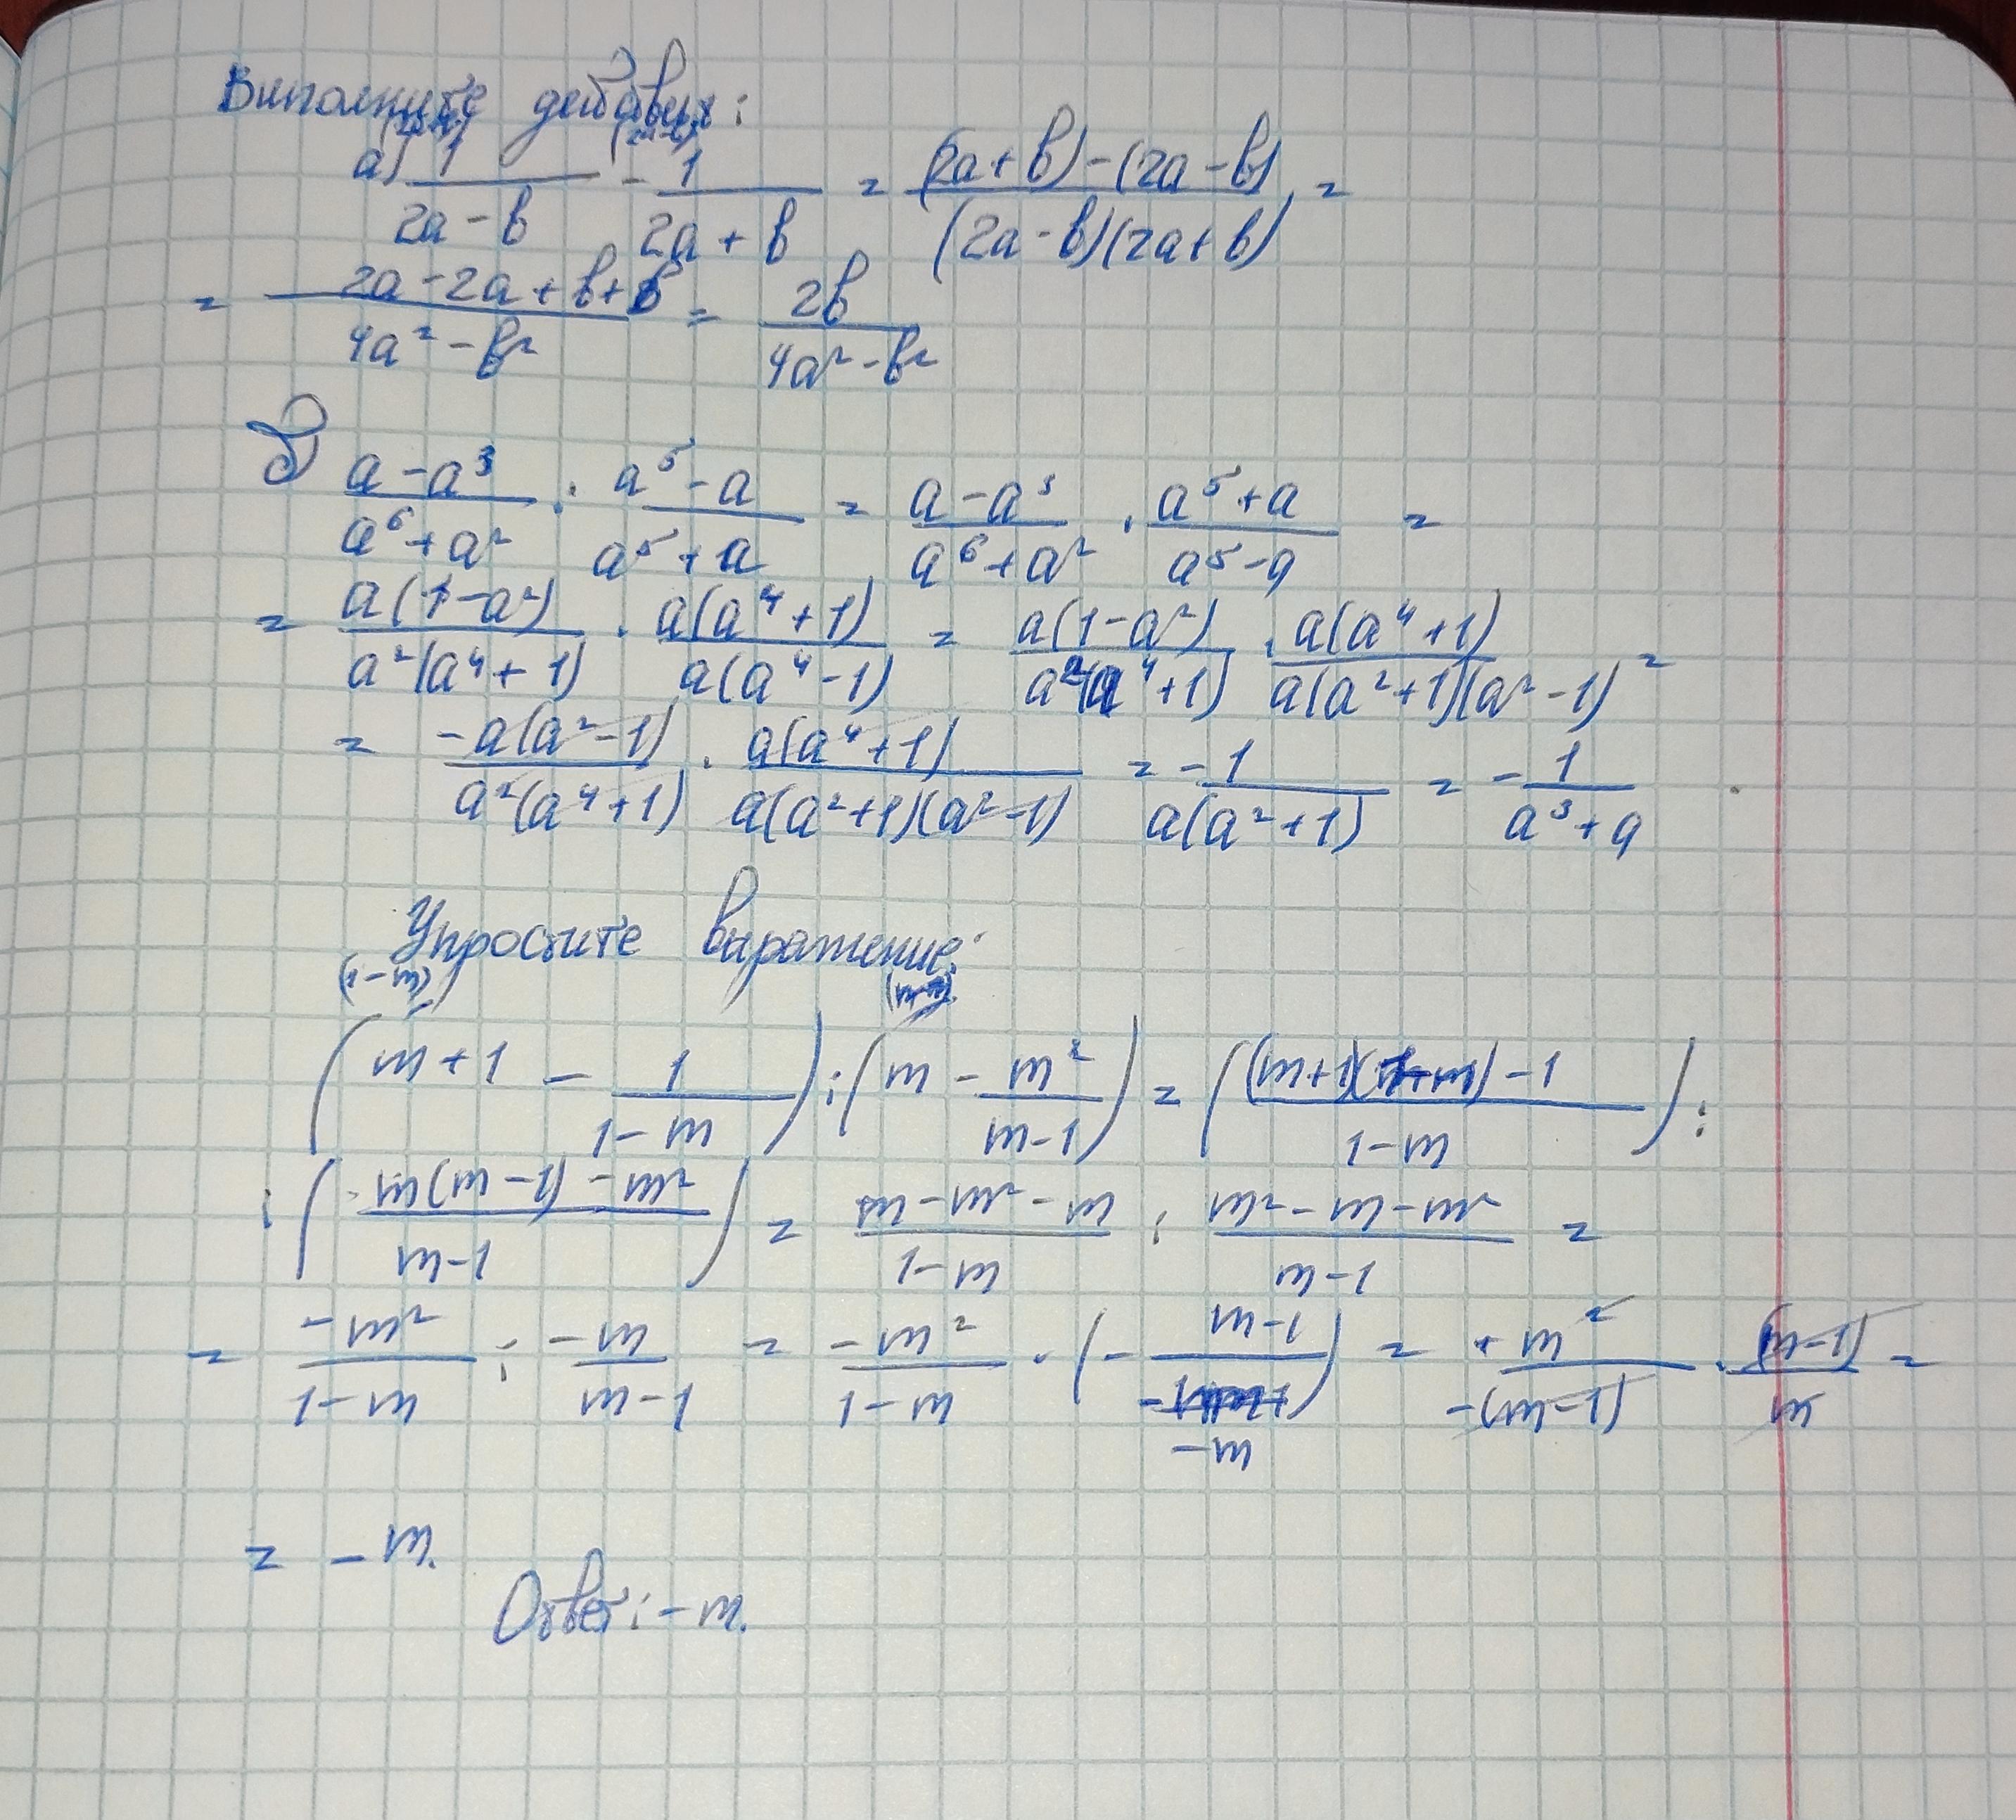 Выполните действия:
(2a+b) (2a-b)
а) 1/(2a-b) - 1/(2a+b) = ((2a+b)-(2a-b))/((2a-b)(2a+b)) =
= (2a-2a+b+b)/(4a²-b²) = 2b/(4a²-b²)
б) (a-a³)/(a⁶+a²) : (a⁵-a)/(a⁵+a) = (a-a³)/(a⁶+a²) · (a⁵+a)/(a⁵-a) =
= a(1-a²)/(a²(a⁴+1)) · a(a⁴+1)/(a(a⁴-1)) = a(1-a²)/(a²(a⁴+1)) · a(a⁴+1)/(a(a²+1)(a²-1)) =
= -a(a²-1)/(a²(a⁴+1)) · a(a⁴+1)/(a(a²+1)(a²-1)) = -1/(a(a²+1)) = -1/(a³+a)
Упростите выражение:
(1-m)
(m+1 - 1/(1-m)) : (m - m²/(m-1)) = (((m+1)(1-m)-1)/(1-m)) :
: ((m(m-1)-m²)/(m-1)) = (m-m²-m)/(1-m) : (m²-m-m²)/(m-1) =
= -m²/(1-m) : -m/(m-1) = -m²/(1-m) · (- (m-1)/-m) = +m²/-(m-1) · (m-1)/m =
= -m.
Ответ: -m.